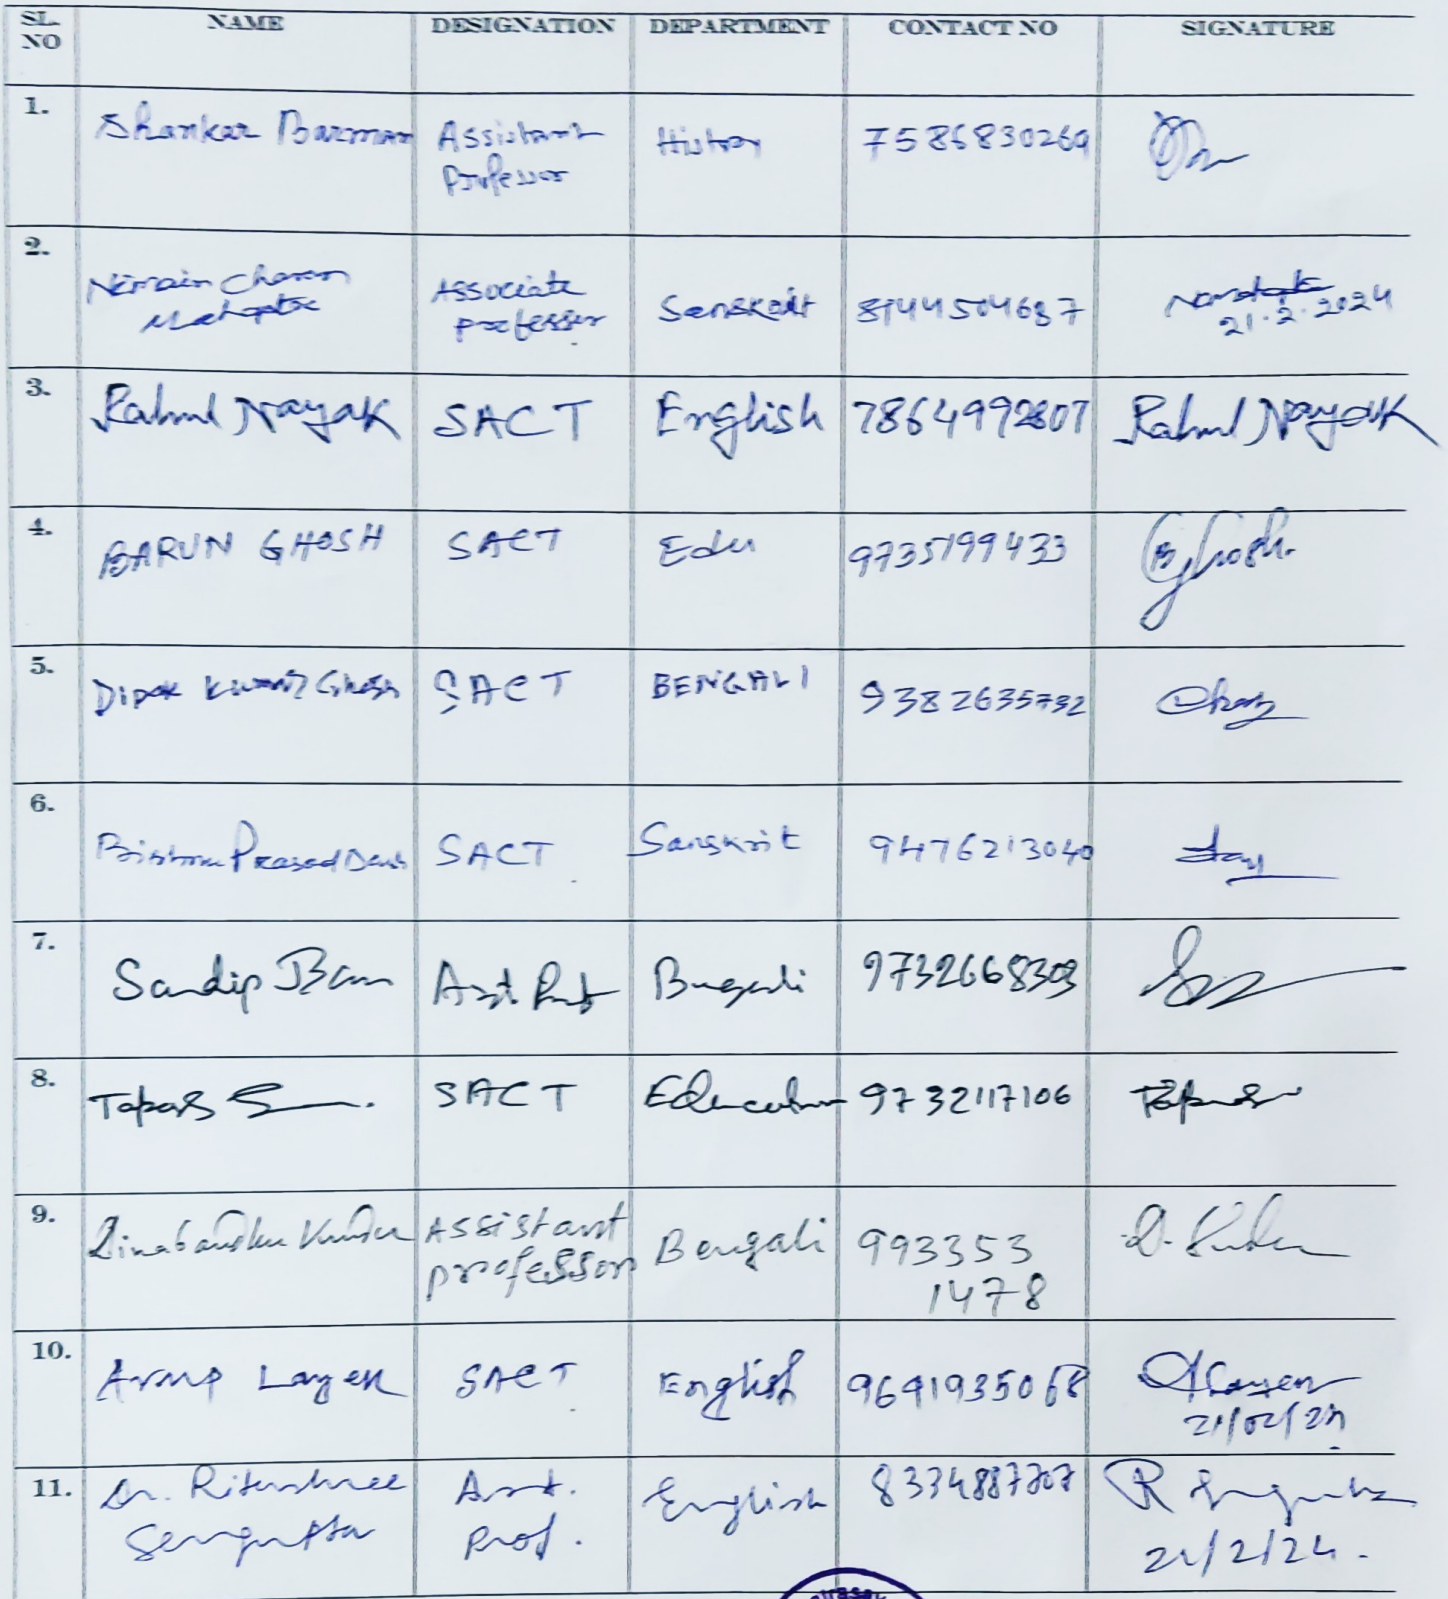 SL. NO NAME DESIGNATION DEPARTMENT CONTACT NO SIGNATURE
1. Shankar Barman Assistant Professor History 7586830269
2. Nimain Charan Associate Professor Sanskrit 8144504687 21.2.2024
3. Rahul Nayak SACT English 7864992807 Rahul Nayak
4. BARUN GHOSH SACT Edu 9735199433 BGhosh.
5. Dipak Kumar Ghosh SACT BENGALI 9382635732
6. Bishnu Prasad Dash SACT Sanskrit 9476213040
7. Sandip Asst Prof Bengali
8. Tapas SACT Education 9732117106
9. Dinabandhu Kundu Assistant professor Bengali 993353
1478
10. Arup Layek SACT English 9641935068 ALayek
21/02/24
11. Dr. Ritushree Asst. English
Sengupta Prof. 21/2/24.